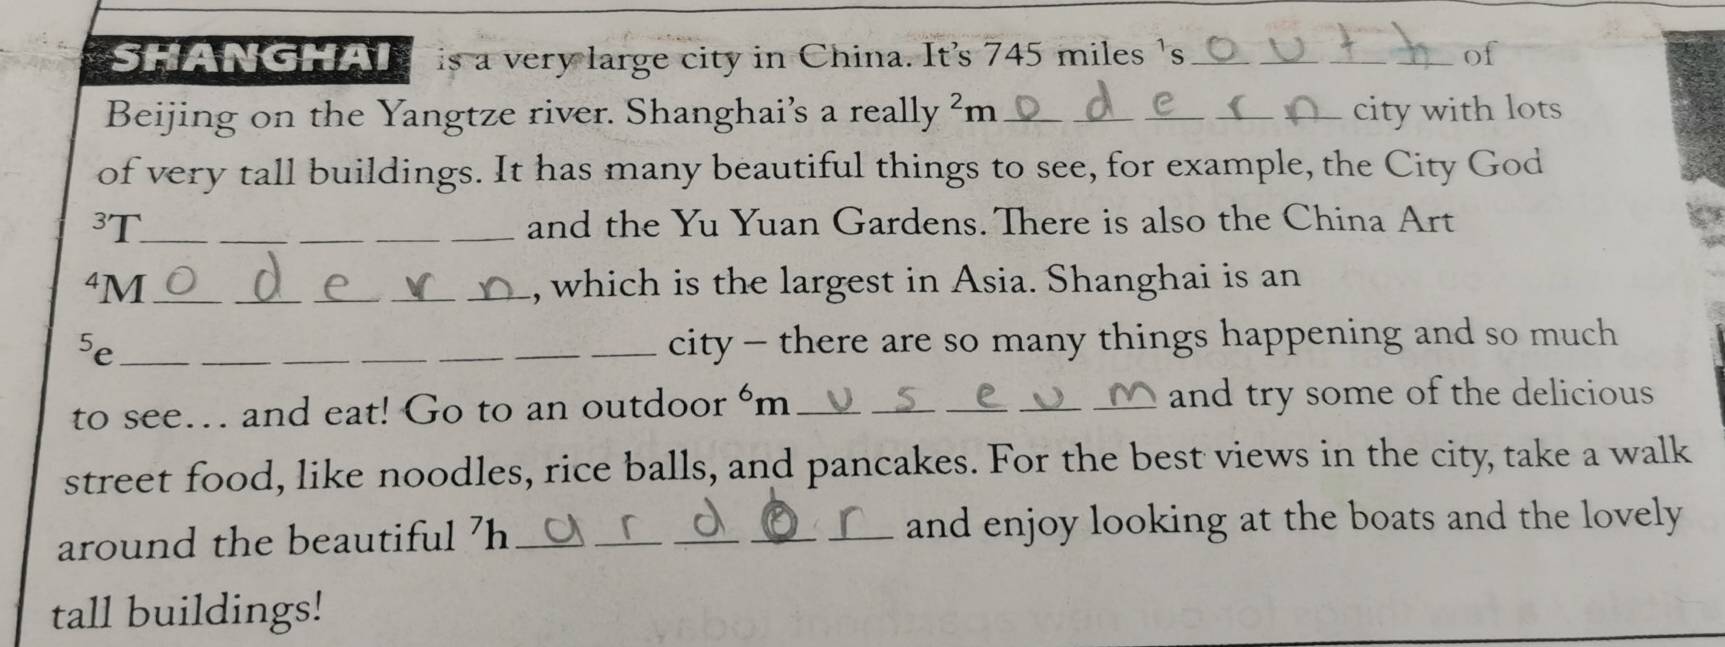 SHANGHAI is a very large city in China. It's 745 miles ¹s o u t h of
Beijing on the Yangtze river. Shanghai's a really ²m o d e r n city with lots
of very tall buildings. It has many beautiful things to see, for example, the City God
³T__ __ __ __ __ and the Yu Yuan Gardens. There is also the China Art
⁴M o d e r n, which is the largest in Asia. Shanghai is an
⁵e__ __ __ __ __ __ __ city – there are so many things happening and so much
to see... and eat! Go to an outdoor ⁶m u s e u m and try some of the delicious
street food, like noodles, rice balls, and pancakes. For the best views in the city, take a walk
around the beautiful ⁷h a r d o r and enjoy looking at the boats and the lovely
tall buildings!